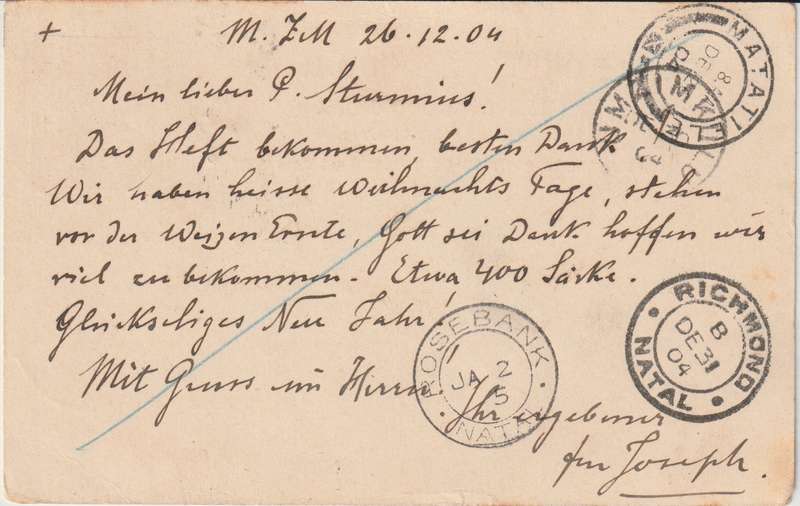 + M. Z M 26.12.04
Mein lieber P. Sturmius!
Das Heft bekommen, besten Dank.
Wir haben heisse Weihnachts Tage, stehen
vor der Weizen Ernte, Gott sei Dank hoffen wir
viel zu bekommen - Etwa 400 Säcke.
Glückseliges Neu Jahr!
Mit Gruss im Herrn!
Ihr ergebener
frr Joseph.
MATATIELE
DE 28
04
04
RICHMOND
B
DE 31
04
NATAL
ROSEBANK
JA 2
5
NATAL